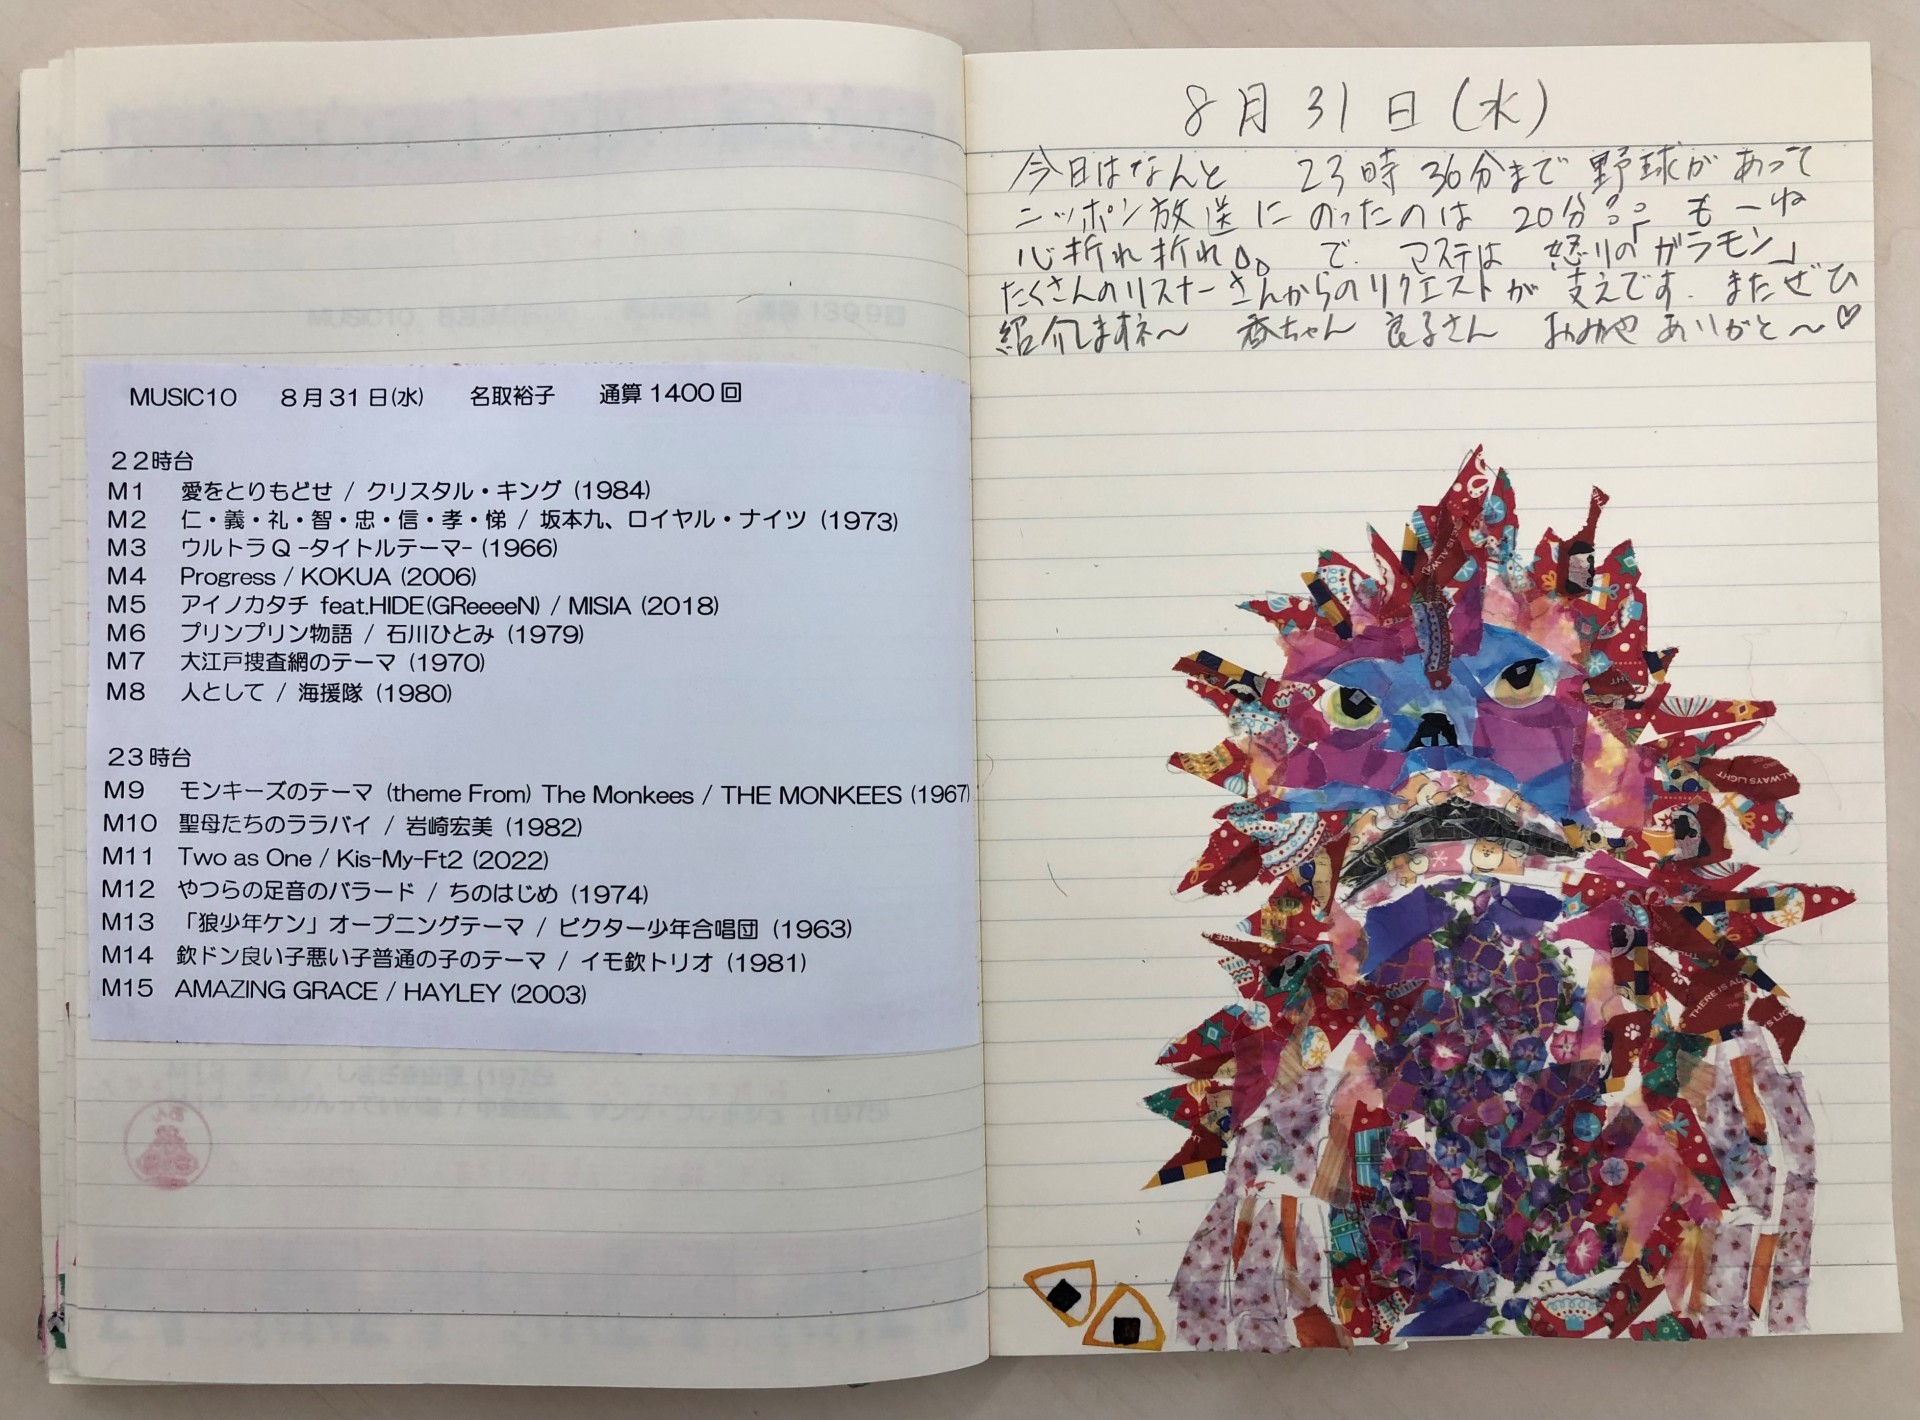 MUSIC10 8月31日(水) 名取裕子 通算1400回
22時台
M1 愛をとりもどせ / クリスタル・キング (1984)
M2 仁・義・礼・智・忠・信・孝・悌 / 坂本九、ロイヤル・ナイツ (1973)
M3 ウルトラQ -タイトルテーマ- (1966)
M4 Progress / KOKUA (2006)
M5 アイノカタチ feat.HIDE(GReeeeN) / MISIA (2018)
M6 プリンプリン物語 / 石川ひとみ (1979)
M7 大江戸捜査網のテーマ (1970)
M8 人として / 海援隊 (1980)
23時台
M9 モンキーズのテーマ (theme From) The Monkees / THE MONKEES (1967)
M10 聖母たちのララバイ / 岩崎宏美 (1982)
M11 Two as One / Kis-My-Ft2 (2022)
M12 やつらの足音のバラード / ちのはじめ (1974)
M13 「狼少年ケン」オープニングテーマ / ビクター少年合唱団 (1963)
M14 欽ドン良い子悪い子普通の子のテーマ / イモ欽トリオ (1981)
M15 AMAZING GRACE / HAYLEY (2003)
8月31日(水)
今日はなんと 23時36分まで野球があって
ニッポン放送にのったのは 20分?? もーね
心折れ折れ。。で マステは 怒りの「ガラモン」
たくさんのリスナーさんからのリクエストが 支えです. またぜひ
紹介しますネ〜 香ちゃん 良子さん おつかれ ありがと〜♡
ALWAYS LIGHT
THERE IS AL
YS LIG